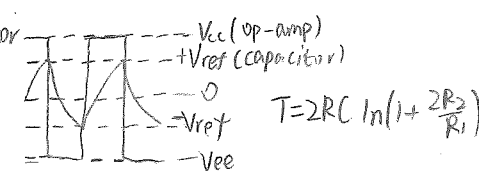 or
Vcc (op-amp)
+Vref (capacitor)
0
-Vref
Vee
T=2RC ln(1+ 2R2/R1)